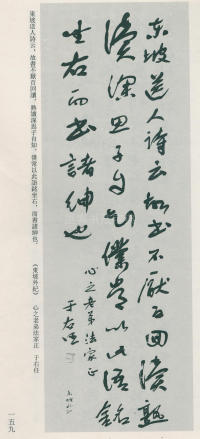 東坡送人詩云故書不厭百回讀熟
讀深思子自知僕嘗以此語銘
坐右而書諸紳也
心之老弟法家正
于右任
東坡送人詩云,故書不厭百回讀,熟讀深思子自知,僕常以此語銘坐右,而書諸紳也。 《東坡外紀》 心之老弟法家正 于右任
一五九